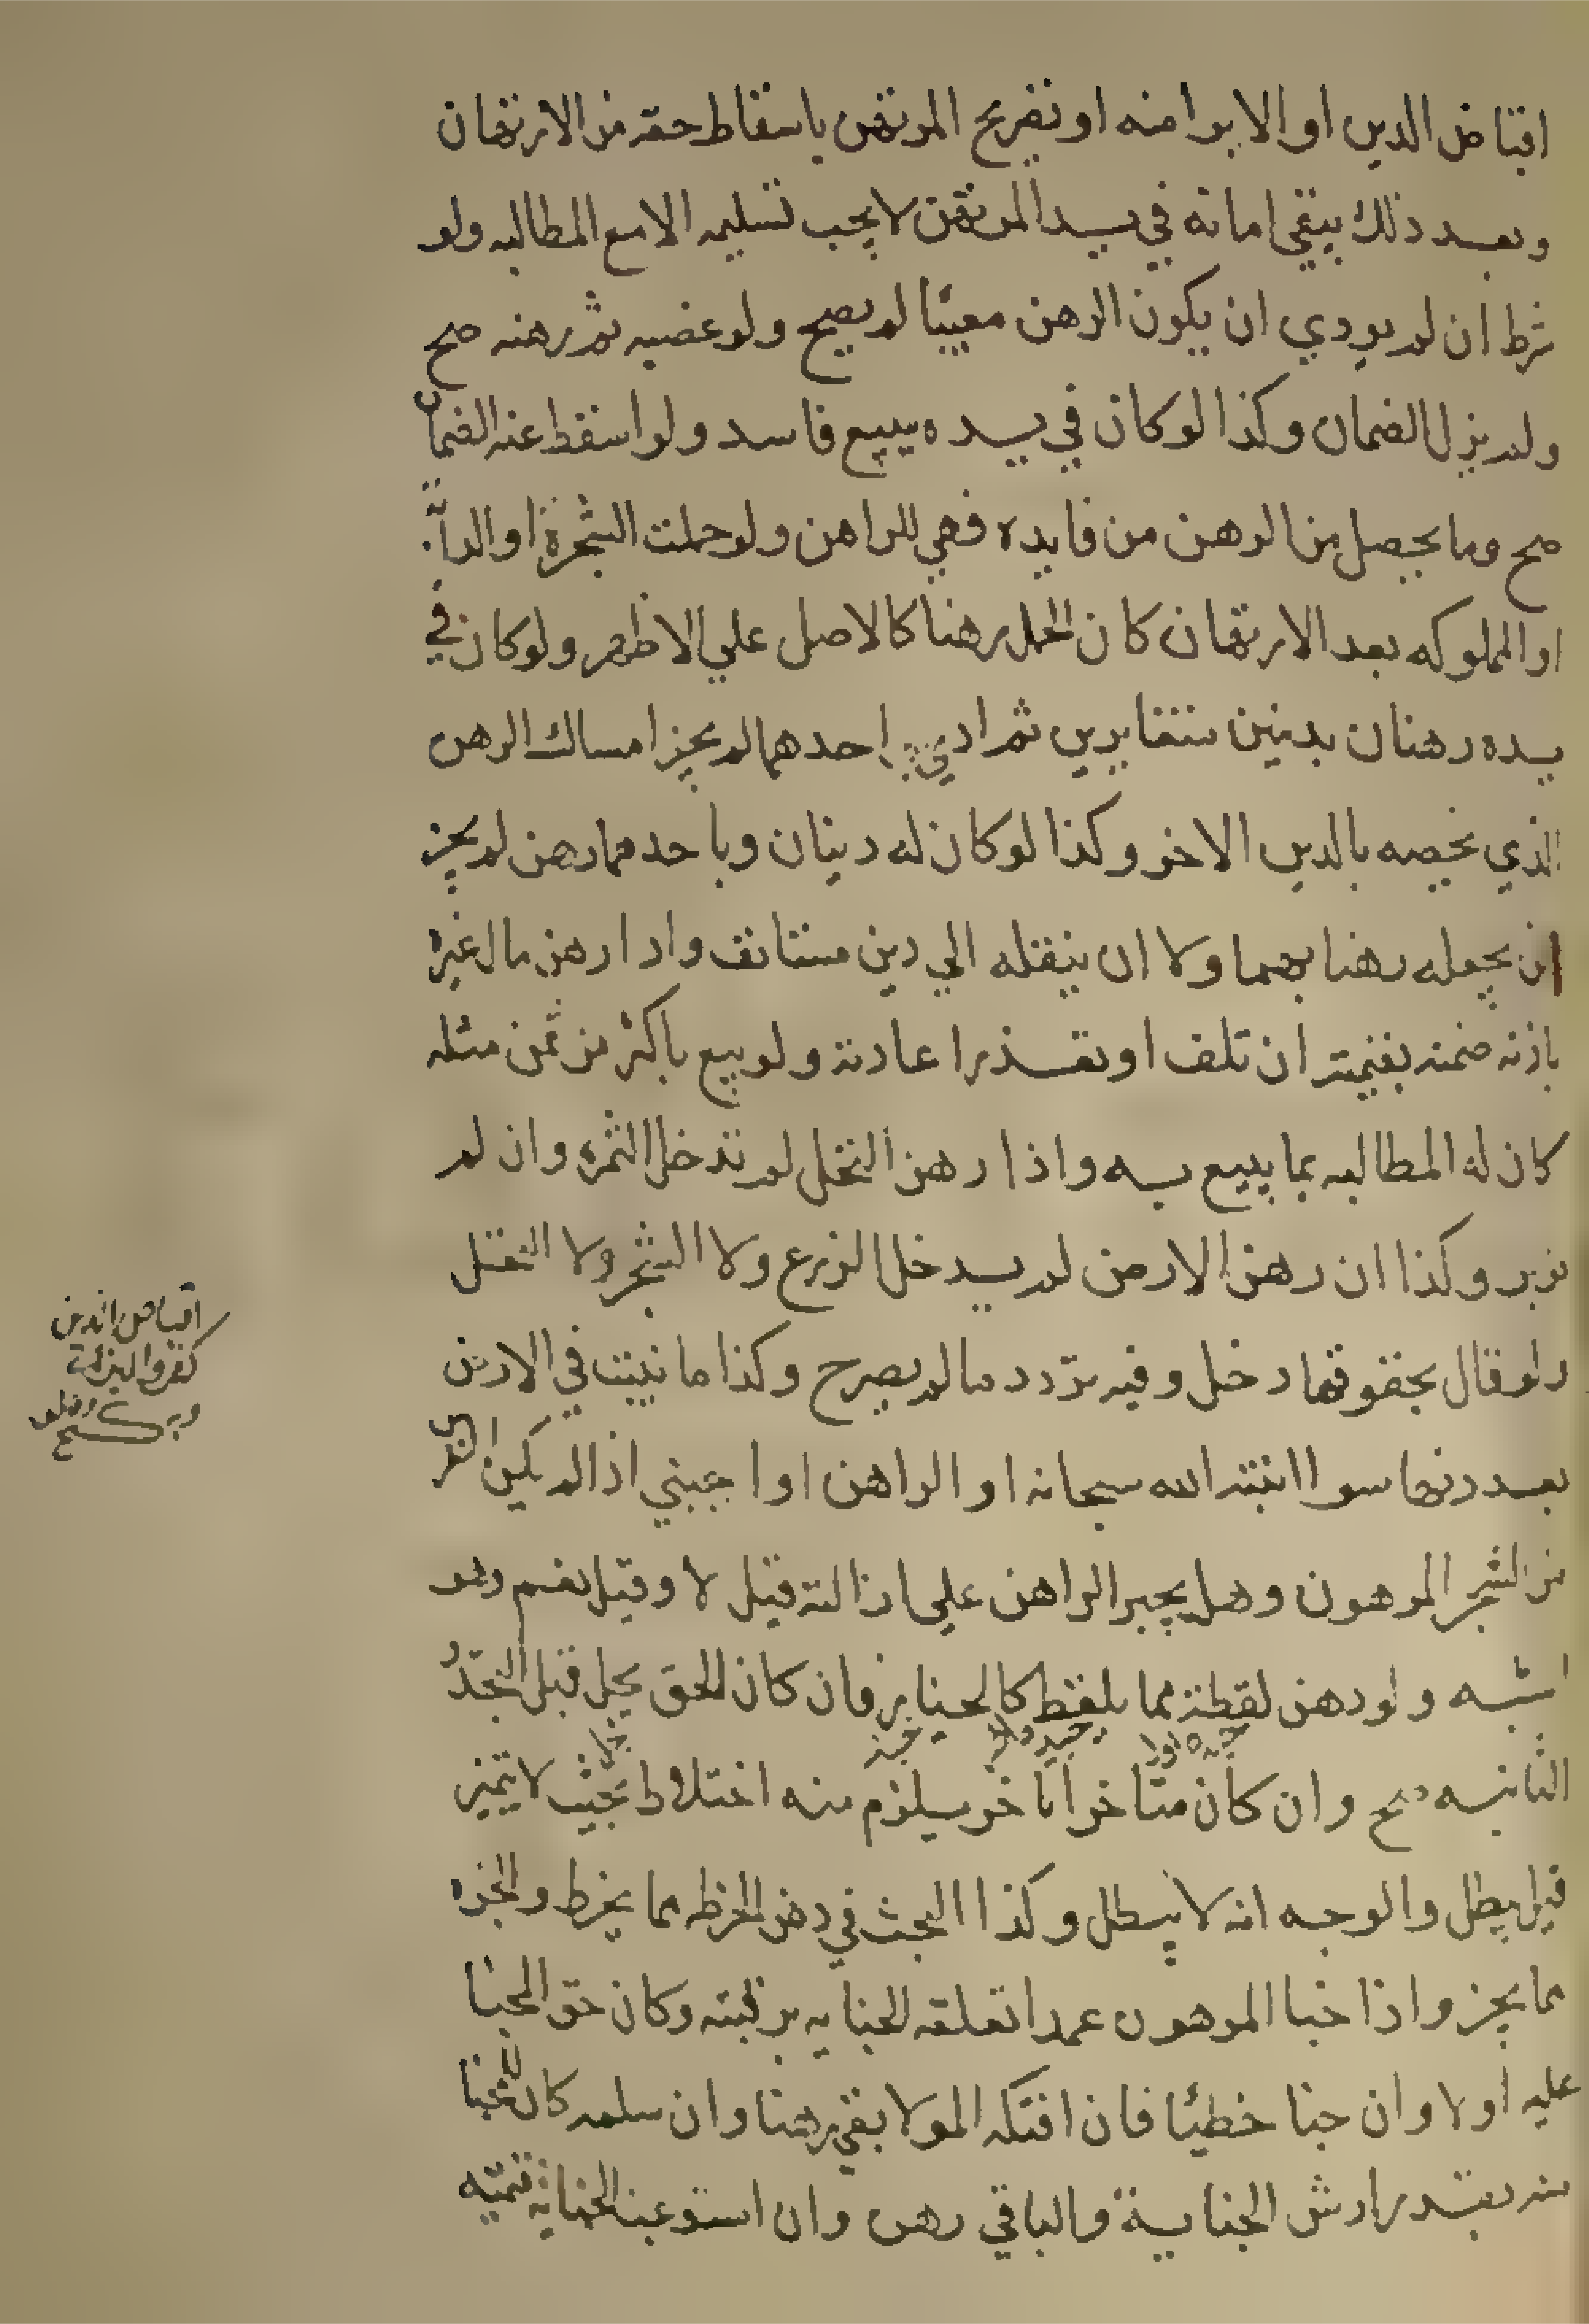 اقباض الدين او الابرا منه او تفريح المرتهن باسقاط حقه من الارتهان
وبعد ذلك يبقي امانه في يد المرتهن لا يجب تسليمه الا مع المطالبه ولو
شرط ان لم يودي ان يكون الرهن مبيعًا لم يصح ولو غصبه ثم رهنه صح
ولم يزل الضمان وكذا لو كان في يده ببيع فاسد ولو اسقط عنه الضمان
صح وما يحصل من الرهن من فايده فهي للراهن ولو حملت الشجرة او الدابة
او المملوكه بعد الارتهان كان الحمل رهنا كالاصل علي الاظهر ولو كان في
يده رهنان بدينين متغايرين ثم ادي احدهما لم يجز امساك الرهن
الذي يخصه بالدين الاخر وكذا لو كان له دينان وباحدهما رهن لم يجز
ان يجعله رهنا بهما ولا ان ينقله الي دين مستانف واذا رهن مال غيره
باذنه ضمنه بقيمته ان تلف او تعذر اعادته ولو بيع باكثر من ثمن مثله
كان له المطالبه بما بيع به واذا رهن النخل لم تدخل الثمره وان لم
توبر وكذا ان رهن الارض لم يدخل الزرع ولا الشجر ولا النخل
ولو قال بحقوقها دخل وفيه تردد ما لم يصرح وكذا ما ينبت في الارض
بعد رهنها سوا انبته الله سبحانه او الراهن او اجنبي اذا لم يكن الغرس
من الشجر المرهون وهل يجبر الراهن علي ازالته قيل لا وقيل نعم وهو
اشبه ولو رهن لقطة مما يلقط كالخيار فان كان الحق يحل قبل تجدد
الثانيه صح وان كان متاخرا تاخر يلزم منه اختلاط بحيث لا يتميز
قيل يبطل والوجه انه لا يبطل وكذا البحث في رهن الخرطه مما يخرط والجزه
مما يجز واذا جنا المرهون عمدا تعلقه الجنايه برقبته وكان حق المجنا
عليه اولا وان جنا خطئا فان افتكه المولا بقي رهنا وان سلمه كان للمجنا
منه بقدر ارش الجناية والباقي رهن وان استوعبت الجناية قيمته
اقباض الدين